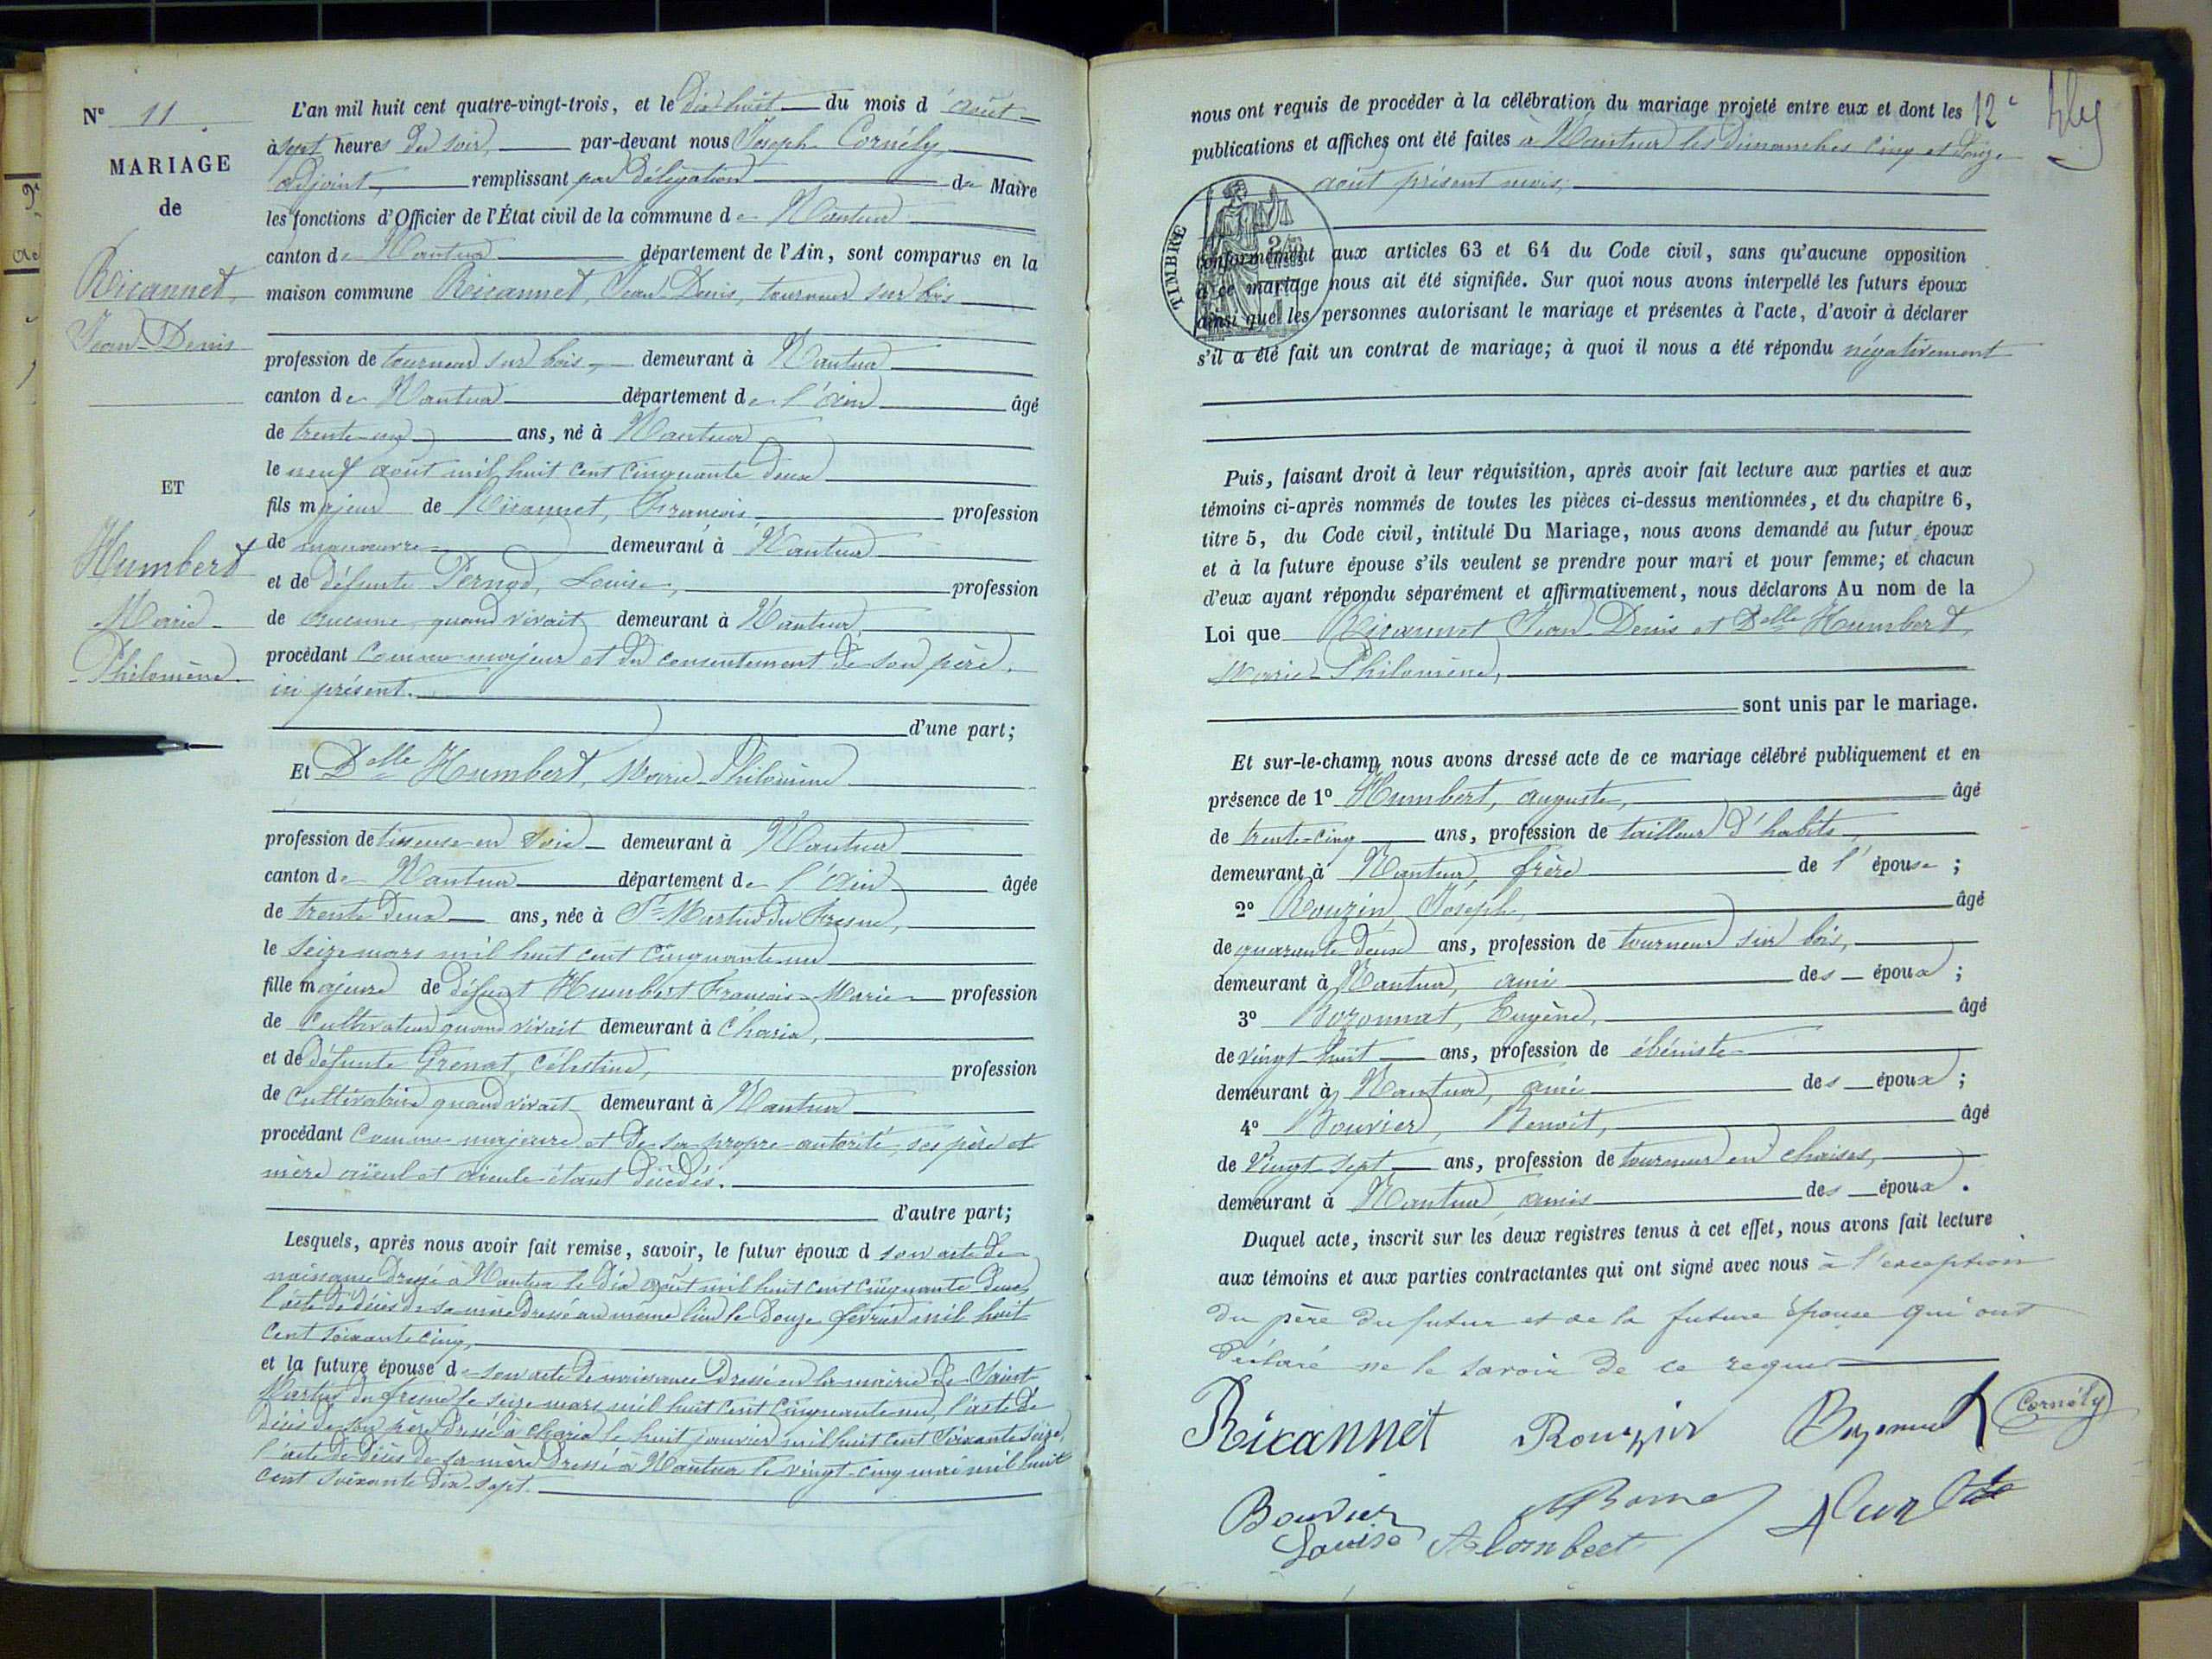 N° 11.
MARIAGE
de
Ricannet,
Jean-Denis
ET
Humbert
Marie-
Philomène.
L'an mil huit cent quatre-vingt-trois, et le dix huit du mois d'août
à sept heures du soir, par-devant nous Joseph Cornély,
adjoint, remplissant par délégation de Maire
les fonctions d'Officier de l'État civil de la commune de Nantua
canton de Nantua département de l'Ain, sont comparus en la
maison commune Ricannet, Jean-Denis, tourneur sur bois
profession de tourneur sur bois, demeurant à Nantua
canton de Nantua département de l'Ain âgé
de trente-un ans, né à Nantua
le neuf août mil huit cent cinquante deux
fils majeur de Ricannet, François profession
de manœuvre demeurant à Nantua
et de défunte Pernod, Louise, profession
de aucune quand vivait demeurant à Nantua
procédant comme majeur et du consentement de son père,
ici présent.
d'une part;
Et Delle Humbert, Marie-Philomène
profession de tisseuse en soie demeurant à Nantua
canton de Nantua département de l'Ain âgée
de trente deux ans, née à St-Martin du Fresne,
le seize mars mil huit cent cinquante un
fille majeure de défunt Humbert François-Marie profession
de cultivateur quand vivait demeurant à Charix,
et de défunte Grenat, Célestine, profession
de cultivatrice quand vivait demeurant à Nantua
procédant comme majeure et de sa propre autorité, ses père et
mère aïeul et aïeule étant décédés.
d'autre part;
Lesquels, après nous avoir fait remise, savoir, le futur époux d son acte de
naissance dressé à Nantua le dix août mil huit cent cinquante deux,
l'acte de décès de sa mère dressé au même lieu le douze février mil huit
cent soixante cinq,
et la future épouse de son acte de naissance dressé en la mairie de Saint-
Martin du Fresne le seize mars mil huit cent cinquante un, l'acte de
décès de son père dressé à Charix le huit janvier mil huit cent soixante seize,
l'acte de décès de sa mère dressé à Nantua le vingt-cinq mai mil huit
cent soixante dix-sept.
nous ont requis de procéder à la célébration du mariage projeté entre eux et dont les 12e
publications et affiches ont été faites à Nantua les dimanches cinq et douze
août présent mois,
TIMBRE
conformément aux articles 63 et 64 du Code civil, sans qu'aucune opposition
à ce mariage nous ait été signifiée. Sur quoi nous avons interpellé les futurs époux
ainsi que les personnes autorisant le mariage et présentes à l'acte, d'avoir à déclarer
s'il a été fait un contrat de mariage; à quoi il nous a été répondu négativement
Puis, faisant droit à leur réquisition, après avoir fait lecture aux parties et aux
témoins ci-après nommés de toutes les pièces ci-dessus mentionnées, et du chapitre 6,
titre 5, du Code civil, intitulé Du Mariage, nous avons demandé au futur époux
et à la future épouse s'ils veulent se prendre pour mari et pour femme; et chacun
d'eux ayant répondu séparément et affirmativement, nous déclarons Au nom de la
Loi que Ricannet Jean-Denis et Delle Humbert,
Marie-Philomène,
sont unis par le mariage.
Et sur-le-champ nous avons dressé acte de ce mariage célébré publiquement et en
présence de 1° Humbert, Auguste, âgé
de trente-cinq ans, profession de tailleur d'habits,
demeurant à Nantua, frère de l'épouse;
2° Rouzin, Joseph, âgé
de quarante deux ans, profession de tourneur sur bois,
demeurant à Nantua, ami des époux;
3° Bozonnat, Eugène, âgé
de vingt huit ans, profession de ébéniste
demeurant à Nantua, ami des époux;
4° Bouvier, Benoit, âgé
de vingt sept ans, profession de tourneur en chaises,
demeurant à Nantua, amis des époux.
Duquel acte, inscrit sur les deux registres tenus à cet effet, nous avons fait lecture
aux témoins et aux parties contractantes qui ont signé avec nous à l'exception
du père du futur et de la future épouse qui ont
déclaré ne le savoir de ce requis
Ricannet Rouzin Cornély
Bouvier
Louise